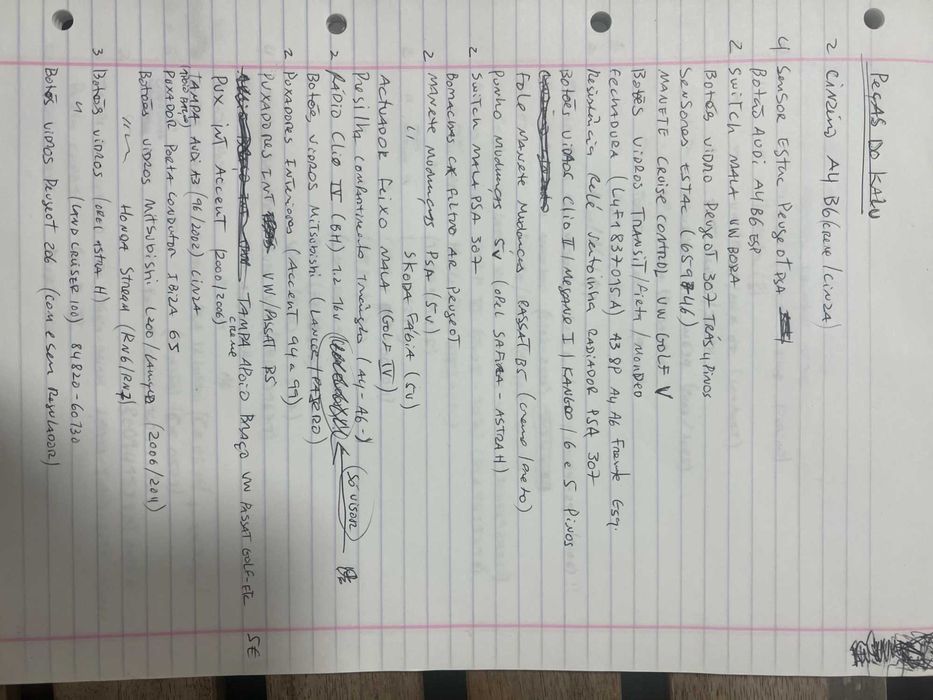 Peças Do Kalu
2 Cinzeiro A4 B6 (creme/cinza)
4 Sensor Estac Peugeot PSA
Botão Audi A4 B6 ESP
2 Switch mala VW Bora
Botões vidro Peugeot 307 Trás 4 pinos
Sensores Estac (6597-46)
Manete Cruise Control VW Golf V
Botões vidros Transit/Fiesta/Mondeo
Fechadura (4F1837015A) A3 8P A4 A6 Frente Esq.
Resistência Relé Ventoinha Radiador PSA 307
Botões vidros Clio II / Megane I / Kangoo / 6 e 5 Pinos
Fole Manete Mudanças Passat B5 (creme/preto)
Punho Mudanças 5V (Opel Safira - Astra H)
2 Switch mala PSA 307
Borrachas cx Filtro Ar Peugeot
2 Manete Mudanças PSA (5V)
ıı Skoda Fabia (5V)
Actuador Feixo mala (Golf IV)
Presilha Compartimento Triângulo (A4-A6-)
2 Rádio Clio IV (BH) 1.2 16v (só visor)
Botões vidros Mitsubishi (Lancer/Pajero)
2 Puxadores Interiores (Accent 94 a 99)
Puxadores Int VW/Passat B5
Tampa Apoio Braço VW Passat Golf-etc 5€
creme
Pux int Accent (2000/2006)
Tampa Audi A3 (96/2002) cinza
(Apoio Braço)
Puxador Porta Condutor Ibiza 6S
Botões vidros Mitsubishi L200/ (2006/2011)
Honda Stream (RN6/RN7)
3 Botões vidros (Opel Astra H)
ıı (Land Cruiser 100) 84820-60130
Botões vidros Peugeot 206 (com e sem Regulador)